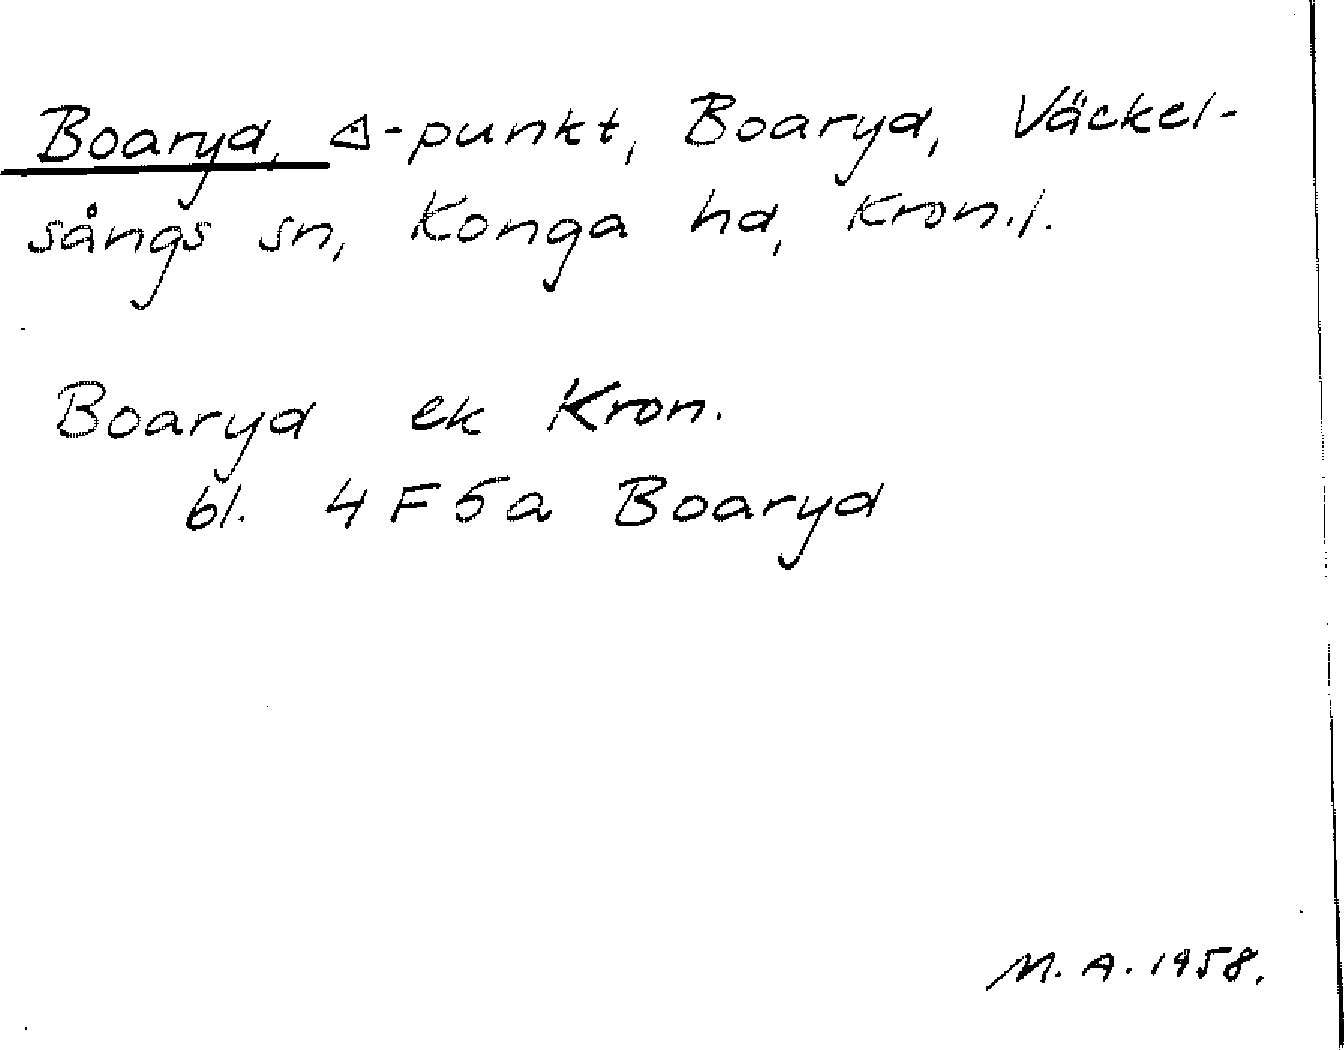 Boaryd, △-punkt, Boaryd, Väckel-
sångs sn, Konga hd, Kron.l.
Boaryd ek Kron.
bl. 4F5a Boaryd
M.A. 1958.